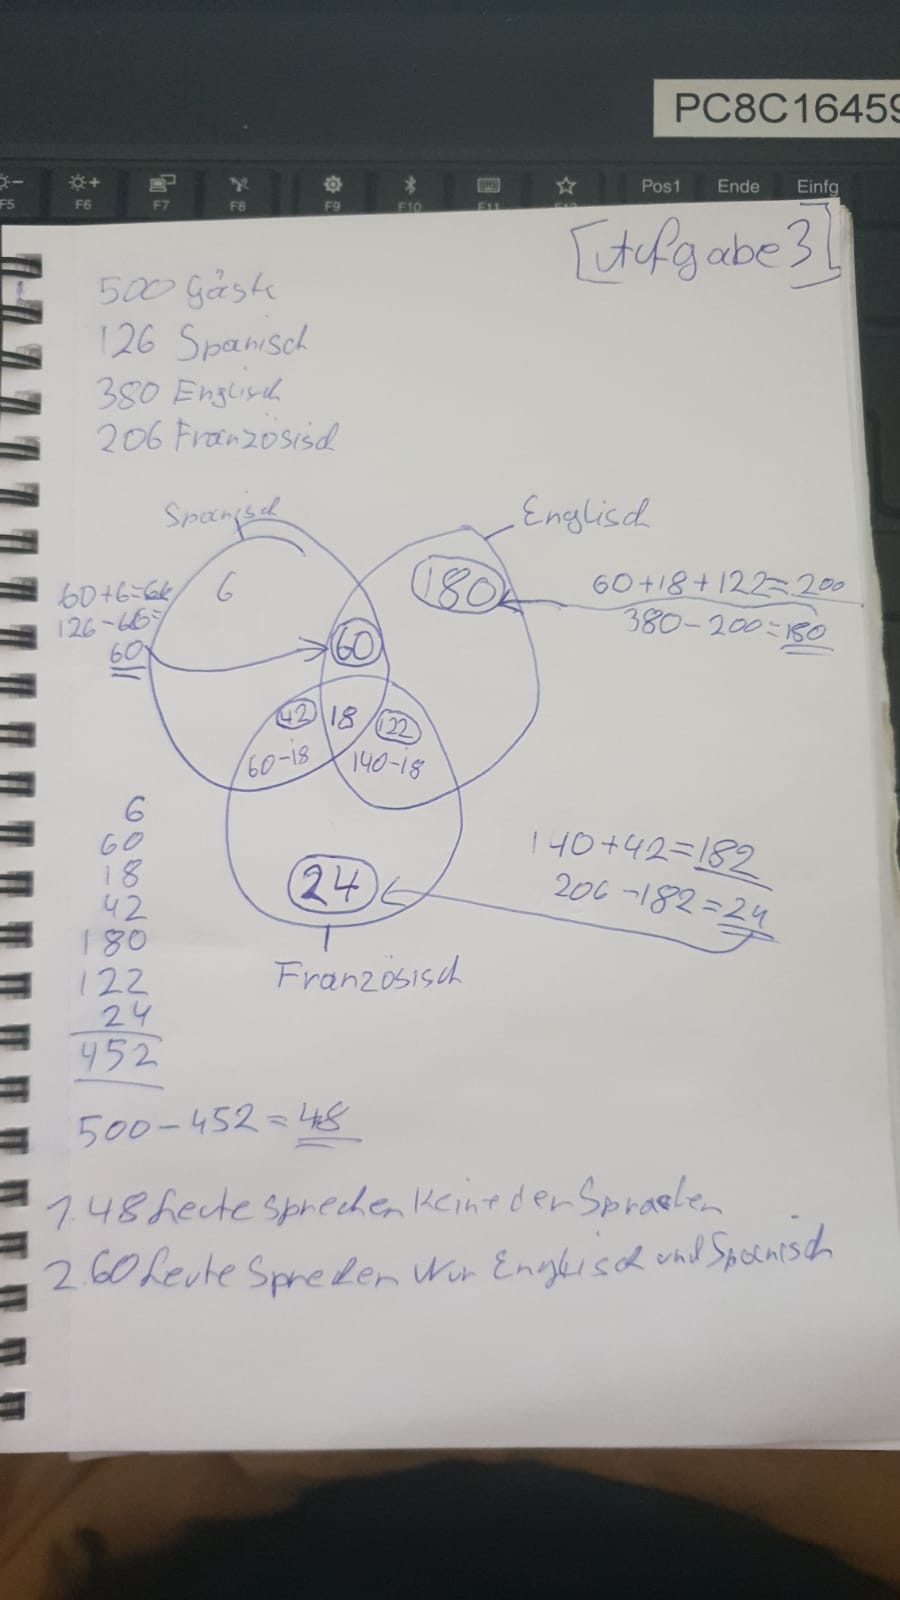 PC8C16459
F5 F6 F7 F8 F9 F10 F11 F12 Pos1 Ende Einfg
[Aufgabe 3]
500 Gäste
126 Spanisch
380 Englisch
206 Französisch
Spanisch
Englisch
60+6=66
126-66=
60
6
180
60+18+122=200
380-200=180
60
42 18 122
60-18 140-18
24
140+42=182
206-182=24
Französisch
6
60
18
42
180
122
24
452
500-452=48
1. 48 Leute sprechen keine der Sprachen
2. 60 Leute Sprechen Nur Englisch und Spanisch